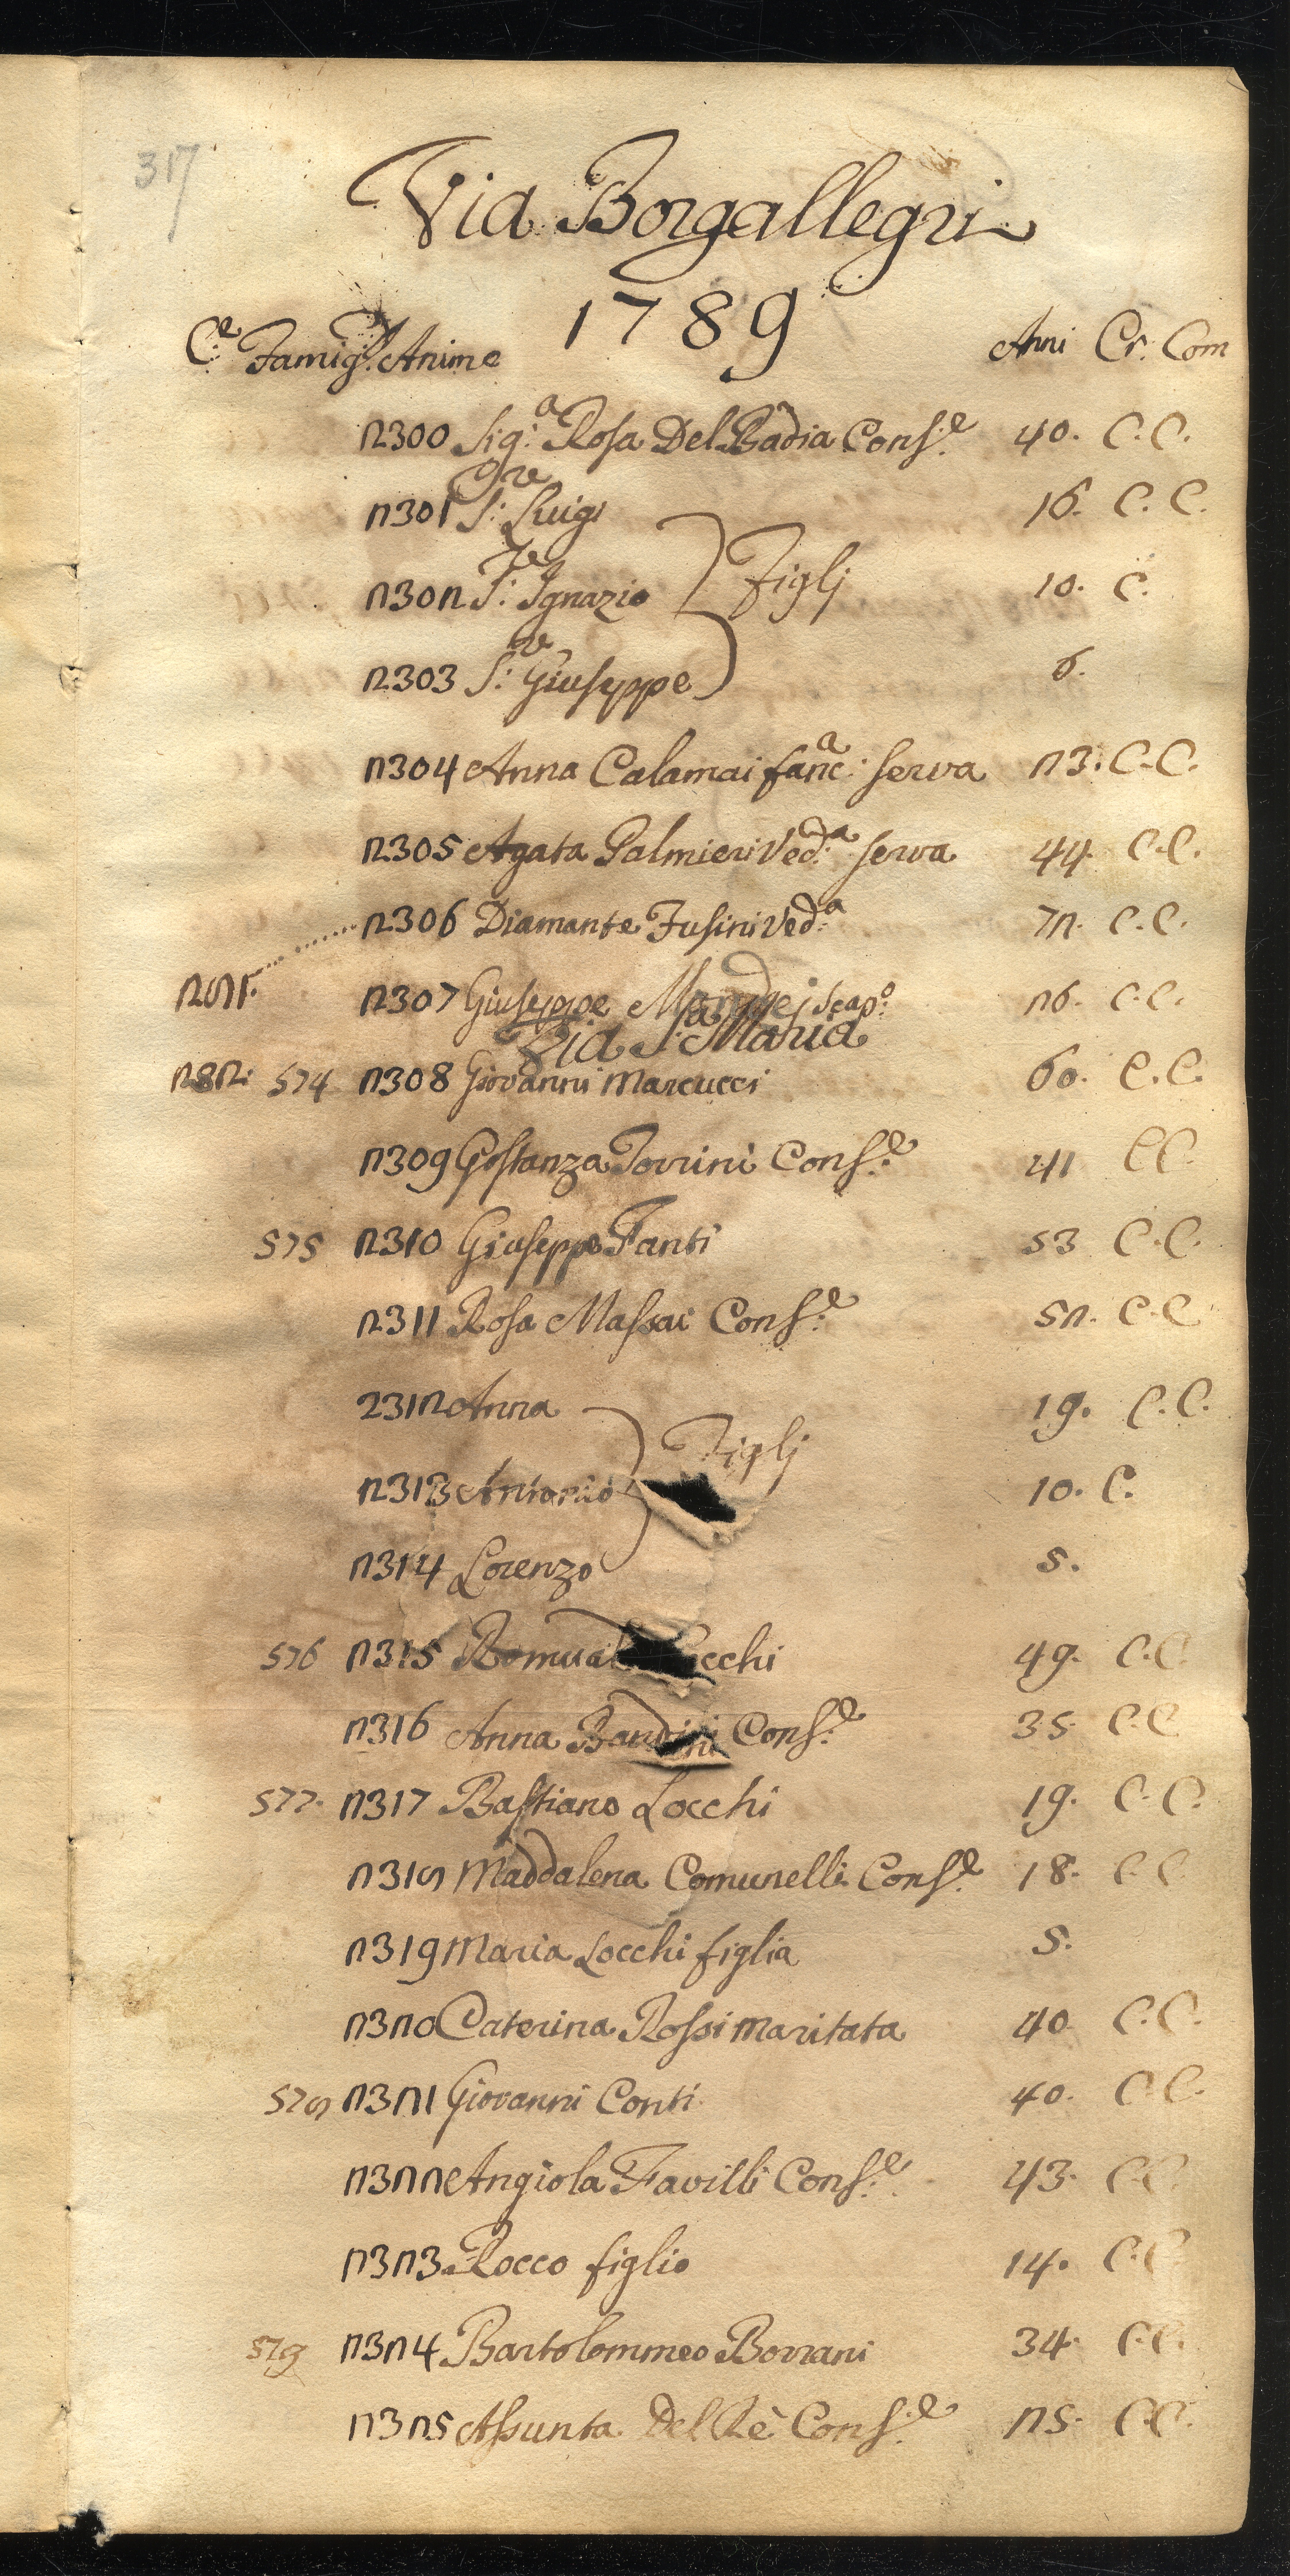 317
Via Borgallegri
1789
C.e Famig.e Anime Anni Cr. Com
2300 Sig.a Rosa Del Badia Cons.e 40. C. C.
2301 S.re Luigi 16. C. C.
2302 S.re Ignazio Figlj 10. C.
2303 S.re Giuseppe 6.
2304 Anna Calamai fanc.a serva 23. C. C.
2305 Agata Palmieri Ved.a serva 44. C. C.
2306 Diamante Fusini Ved.a 72. C. C.
281. 2307 Giuseppe scap.o 26. C. C.
Via S.a Maria
282. 574 2308 Giovanni Marcucci 60. C. C.
2309 Gostanza Torrini Cons.e 41 C C.
575 2310 Giuseppe Fanti 53 C. C.
2311 Rosa Massai Cons.e 52. C. C
2312 Anna 19. C. C.
2313 Antonio Figlj 10. C.
2314 Lorenzo 5.
576 2315 Romual cchi 49. C. C.
2316 Anna Bandini Cons.e 35. C. C
577. 2317 Bastiano Locchi 19. C. C.
2318 Maddalena Comunelli Cons.e 18. C C
2319 Maria Locchi figlia 5.
2320 Caterina Rossi maritata 40 C. C.
578 2321 Giovanni Conti 40. C. C.
2322 Angiola Favilli Cons.e 43. C. C
2323 Rocco figlio 14. C. C
579 2324 Bartolommeo Borrani 34. C. C.
2325 Assunta Del Rè Cons.e 25. C. C.